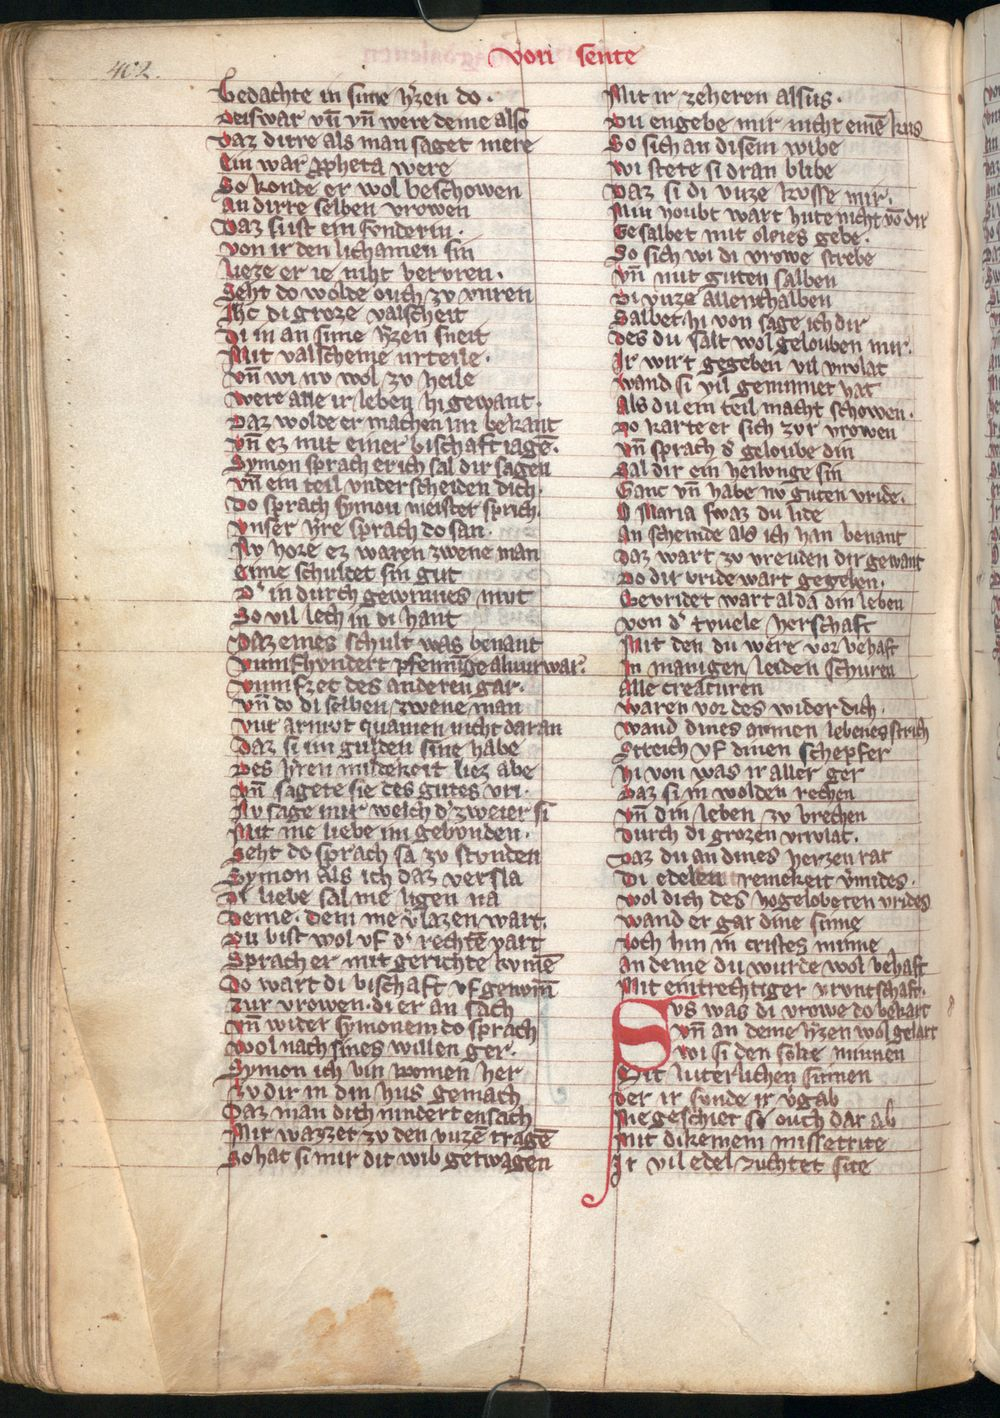 402.
Von sente
Gedachte in sime h̄zen do.
Deiswar vn̄ vn̄ were deme also
Daz dirre als man saget mere
Ein war ꝓpheta were
So konde er wol beschowen
An dirre selben vrowen
Daz si ist ein sonderin.
Von ir den lichamen sin
Lieze er ie niht beruren.
Seht do wolde ouch zv vnren
Ih̄c di groze valscheit
Di in an sime h̄zen sneit
Mit valscheme urteile.
Vn̄ wi nv wol zv heile
Were alle ir leben hi gewant.
Daz wolde er machen im bekant
Vn̄ ez mit einer bischaft iagē.
Symon sprach er ich sal dir sagen
Vn̄ ein teil vnderscheiden dich.
Do sprach symon meister sprich.
Vnser h̄re sprach do san.
Nv hore ez waren zwene man
Eime schuldet sin gut
D' in durch gewinnes mut
So vil lech in di hant
Daz eines schult was benant
Vumfhundert pfennige al vur war.
Vumfzec des anderen gar.
Vn̄ do di selben zwene man
Vur armvt quamen nicht dar an
Daz si im gulden sine habe
Des h̄ren mildekeit liez abe
Vn̄ sagete sie des gutes vri.
Nv sage mir welch d' zweier si
Mit me liebe im gebonden.
Seht do sprach sa zv stvnden
Symon als ich daz versta
Di liebe sal me ligen na
Deme. dem me v̄lazen wart.
Du bist wol vf d' rechtē vart
Sprach er mit gerichte kvmē
Do wart di bischaft vf genom̄
Zur vrowen. di er an sach
Vn̄ wider symonem do sprach
Wol nach sines willen ger.
Symon ich bin komen her
Zv dir in din hus gemach
Daz man dich nindert ensach
Mir wazzer zv den vuzē tragē
So hat si mir dit wib getwagen
Mit ir zeheren alsus.
Du engebe mir nicht einē kus
So sich an disem wibe
Wi stete si dran blibe
Daz si di vuze kusse mir.
Min houbt wart hute nicht vō dir
Gesalbet mit oleies gebe.
So sich wi di vrowe strebe
Vn̄ mit guten salben
Di vuze allenthalben
Salbet. hi von sage ich dir
Des du salt wol gelouben mir.
Ir wirt gegeben vil vnvlat
Wand si vil geminnet hat
Als du ein teil macht schowen.
Do karte er sich zvr vrowen
Vn̄ sprach d' geloube din
Sal dir ein heilvnge sin
Ganc vn̄ habe nv guten vride.
O Maria swaz du lide
An scheinde als ich han benant
Daz wart zv vreuden dir gewant
Do dir vride wart gegeben.
Bevridet wart alda din leben
Von d' tvuele herschaft
Mit den du were vor behaft
In manigen leiden schuren
Alle creaturen
Waren vor des wider dich.
Wand dines armen lebenes strich
Streich vf dinen schepfer
Hi von was ir aller ger
Daz si in wolden rechen
Vn̄ din leben zv brechen
Durch di grozen vnvlat.
Daz du an dines herzen rat
Di edelen reinekeit v̄mides.
Wol dich des hogelobeten vrides
Wand er gar dine sinne
Zoch hin in cristes minne
An deme du wurde wol behaft
Mit eintrechtiger vruntschaft.
Svs was di vrowe do bekart
Vn̄ an deme h̄zen wol gelart
Wi si den solte minnen
Mit luterlichen sinnen
Der ir sunde ir v̄gab
Nie geschiet si ouch dar ab
Mit dikeinem missetrite
Ir vil edel zuchtet site